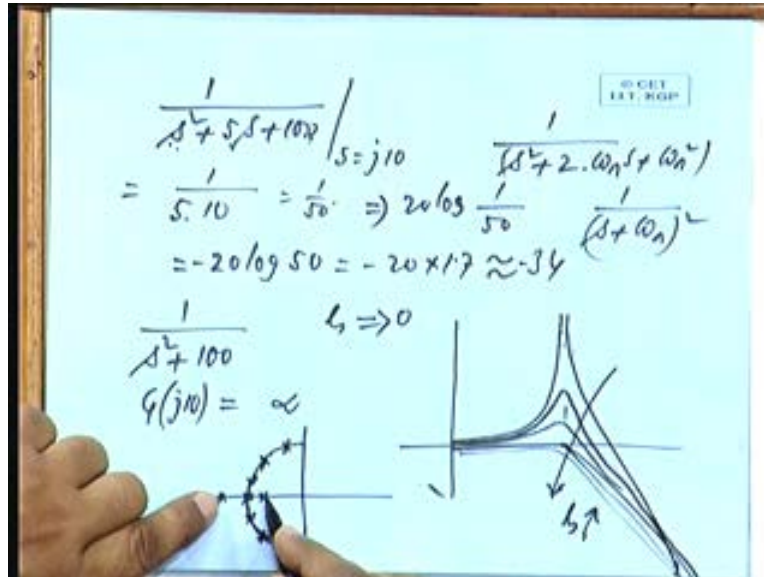 © CET
I.I.T. KGP
1 / (s² + 5s + 100) | s = j10
1 / (s² + 2.ωₙs + ωₙ²)
= 1 / 5.10 = 1/50. ⇒ 20 log 1/50
1 / (s + ωₙ)²
= -20 log 50 = -20 × 1.7 ≈ -34
1 / (s² + 100)
ζ ⇒ 0
G(j10) = ∝
ζ↑